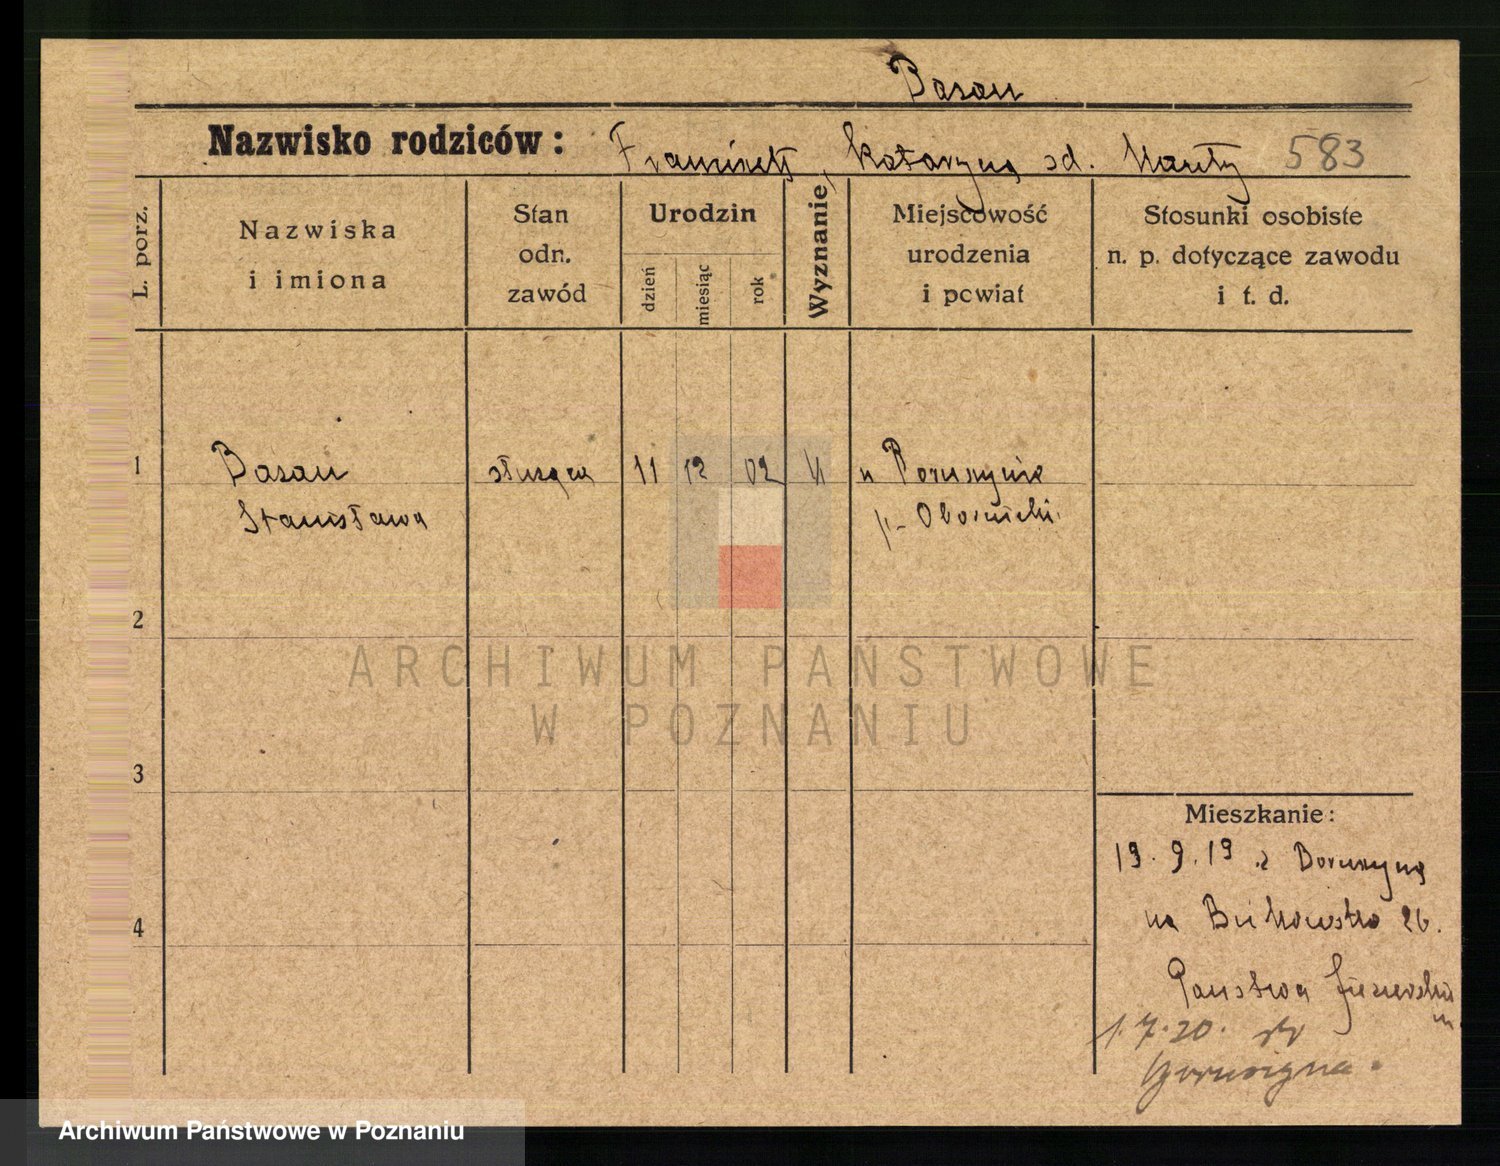 Basan
Nazwisko rodziców: Franciszek, Katarzyna zd. 583
L. porz.
Nazwiska
i imiona
Stan
odn.
zawód
Urodzin
dzień
miesiąc
rok
Wyznanie
Miejscowość
urodzenia
i powiat
Stosunki osobiste
n. p. dotyczące zawodu
i t. d.
1 Basan służąca 11 12 02 w
Stanisława p. Obornicki
2
3
4
Mieszkanie:
19. 9. 19 z Boruszyna
na Bukowska 26.
Państwa
1. 7. 20. do
Boruszyna.
ARCHIWUM PAŃSTWOWE
W POZNANIU
Archiwum Państwowe w Poznaniu